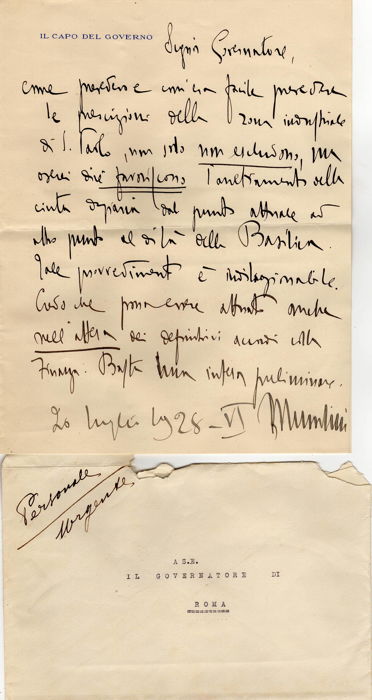 IL CAPO DEL GOVERNO
Signor Governatore,
come prevedevo e com'era facile prevedere
le prescrizioni della zona industriale
di S. Paolo, non solo non escludono, ma
direi favoriscono l'arretramento della
cinta daziaria dal punto attuale ad
altro punto al di là della Basilica.
Tale provvedimento è indilazionabile.
Credo che possa essere attuato anche
nell'attesa dei definitivi accordi colla
Finanza. Basta una intesa preliminare.
20 luglio 1928 - VI Mussolini
Personale
Urgente
A S.E.
IL GOVERNATORE DI
ROMA